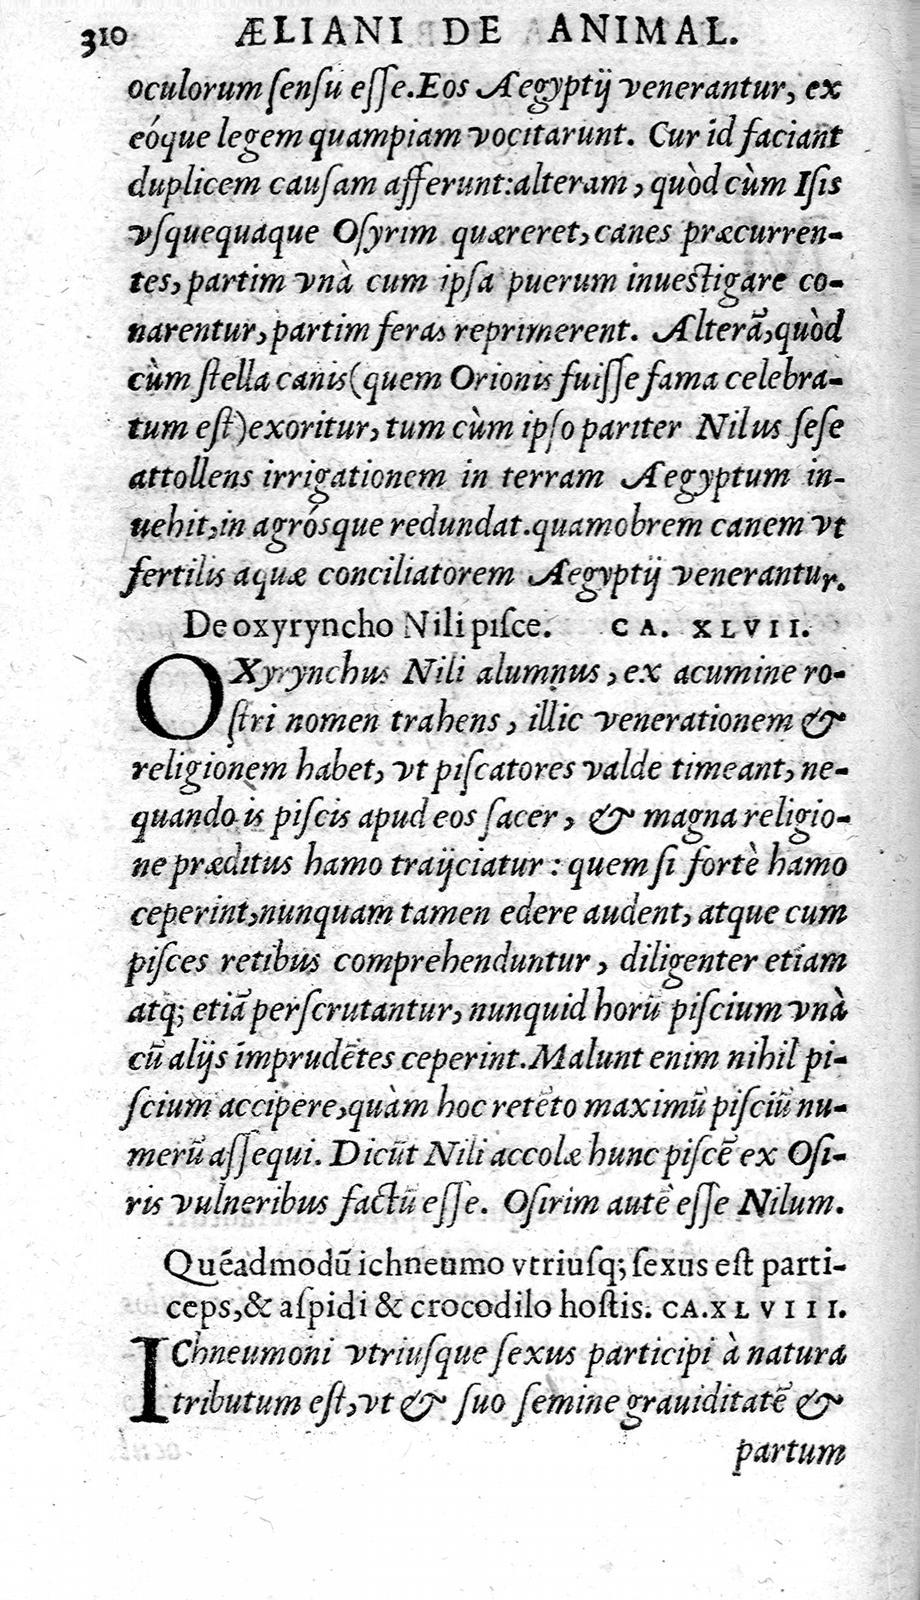 310 ÆLIANI DE ANIMAL.
oculorum ſenſu eſſe. Eos Aegyptij venerantur, ex
eóque legem quampiam vocitarunt. Cur id faciant
duplicem cauſam afferunt: alteram, quòd cùm Iſis
vſquequaque Oſyrim quæreret, canes præcurren-
tes, partim vnà cum ipſa puerum inueſtigare co-
narentur, partim feras reprimerent. Alterã, quòd
cùm ſtella canis (quem Orionis fuiſſe fama celebra-
tum eſt) exoritur, tum cùm ipſo pariter Nilus ſeſe
attollens irrigationem in terram Aegyptum in-
uehit, in agrósque redundat. quamobrem canem vt
fertilis aquæ conciliatorem Aegyptij venerantur.
De oxyryncho Nili piſce. CA. XLVII.
OXyrynchus Nili alumnus, ex acumine ro-
ſtri nomen trahens, illic venerationem &
religionem habet, vt piſcatores valde timeant, ne-
quando is piſcis apud eos ſacer, & magna religio-
ne præditus hamo traijciatur: quem ſi fortè hamo
ceperint, nunquam tamen edere audent, atque cum
piſces retibus comprehenduntur, diligenter etiam
atq; etiã perſcrutantur, nunquid horũ piſcium vnà
cũ alijs imprudẽtes ceperint. Malunt enim nihil pi-
ſcium accipere, quàm hoc retẽto maximũ piſciũ nu-
merũ aſſequi. Dicũt Nili accolæ hunc piſcẽ ex Oſi-
ris vulneribus factũ eſſe. Oſirim autẽ eſſe Nilum.
Quẽadmodũ ichneumo vtriuſq; ſexus eſt parti-
ceps, & aſpidi & crocodilo hoſtis. CA. XLVIII.
IChneumoni vtriuſque ſexus participi à natura
tributum eſt, vt & ſuo ſemine grauiditatẽ &
partum